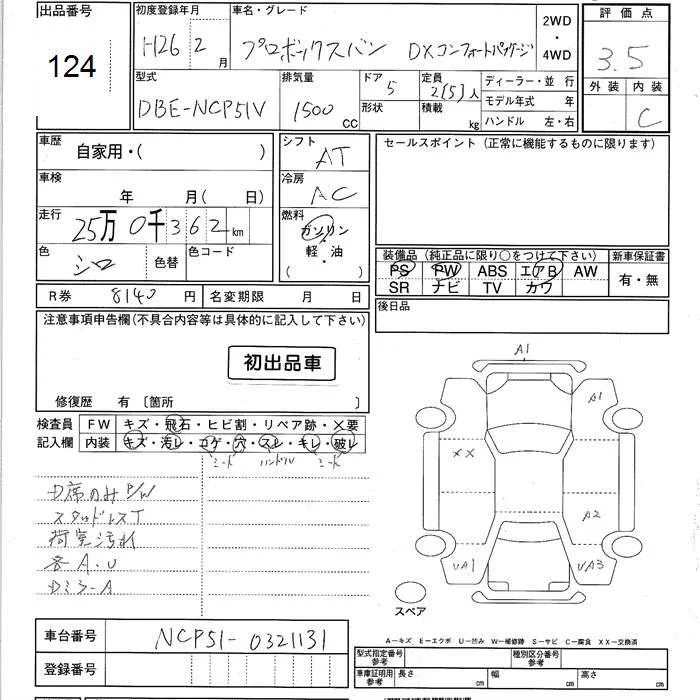 出品番号 初度登録年月 車名・グレード 2WD ・ 4WD 評価点
124 H26 2 月 プロボックスバン DXコンフォートパッケージ 3.5
型式 排気量 ドア 5 定員 2(5)人 ディーラー・並 行 外装 内装
DBE-NCP51V 1500 CC 形状 積載 kg モデル年式 年 C
ハンドル 左・右
車歴 自家用・( ) シフト AT セールスポイント(正常に機能するものに限ります)
車検 年 月( 日) 冷房 AC
走行 25万0千362km 燃料 ガソリン
色 シロ 色替 色コード 軽・油 ( )
装備品(純正品に限り○をつけて下さい) 新車保証書
PS PW ABS エアB AW 有・無
SR ナビ TV カワ
R券 8140 円 名変期限 月 日 後日品
注意事項申告欄(不具合内容等は具体的に記入して下さい)
初出品車
修復歴 有 〔箇所 〕
検査員 FW キズ・飛石・ヒビ割・リペア跡・×要
記入欄 内装 キズ・汚レ・コゲ・穴・スレ・キレ・破レ
シート ハンドル シート
D席のみP/W
スタッドレスT
荷室汚れ
各A.U
Dミラ-A
A1
A1
XX
A2
UA1 UA3
スペア
A-キズ E-エクボ U-凹み W-補修跡 S-サビ C-腐食 XX-交換済
車台番号 NCP51-0321131
登録番号
型式指定番号 参考 種別区分番号 参考
車庫証明用 参考 長さ cm 幅 cm 高さ cm